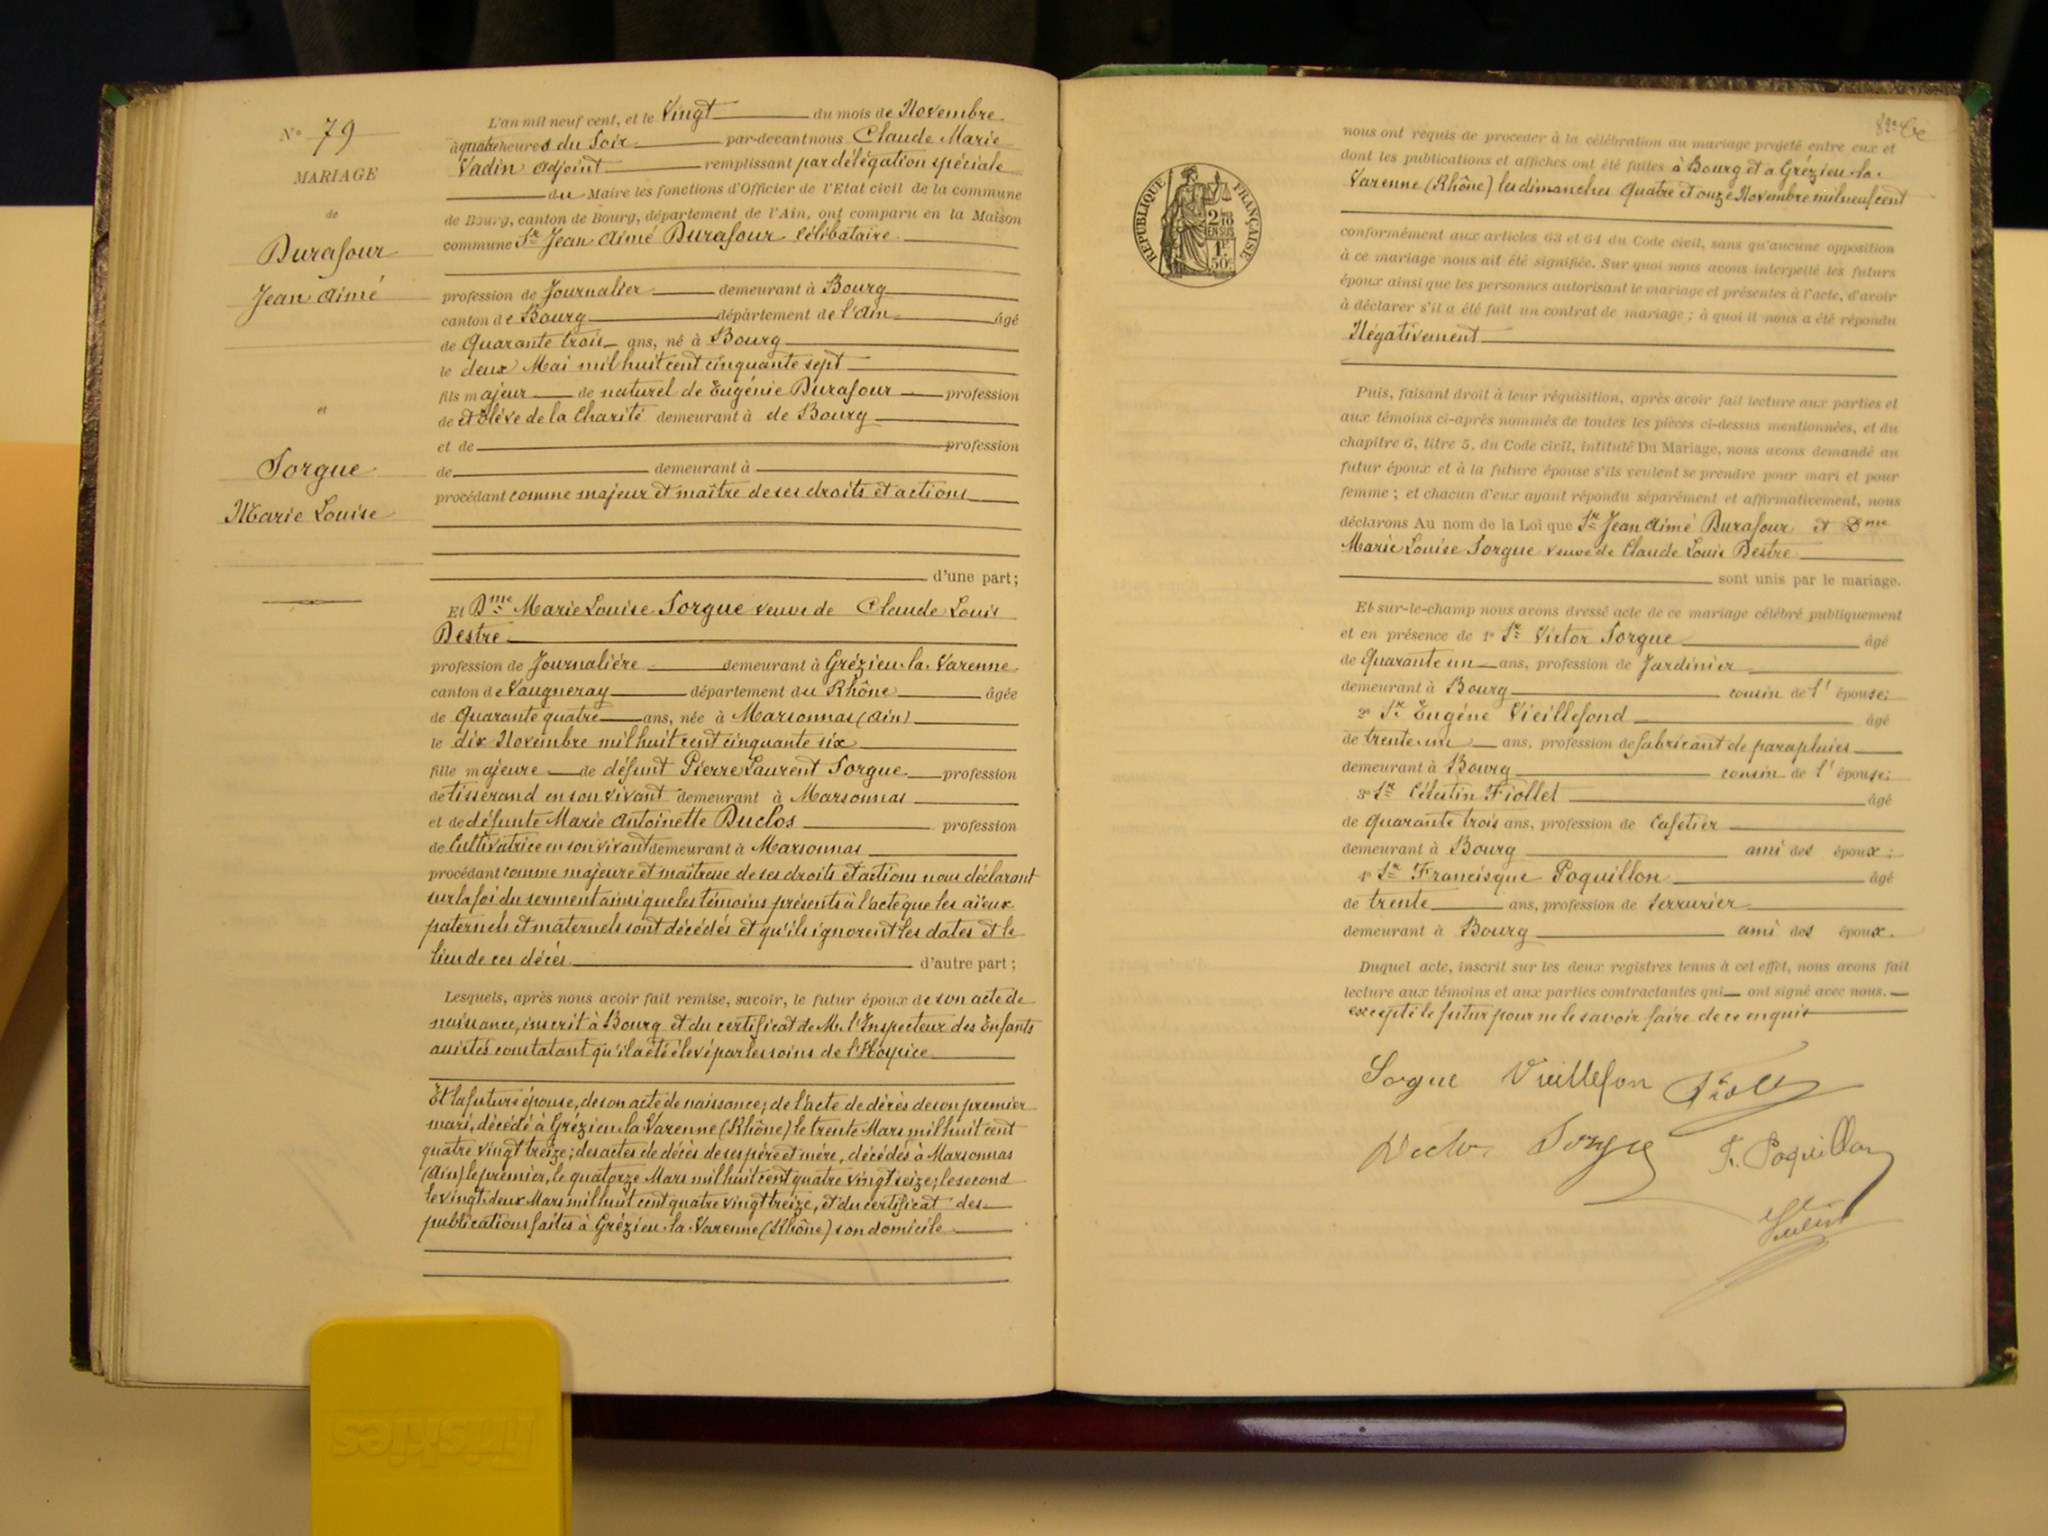 N° 79
MARIAGE
de
Durafour
Jean Aimé
et
Sorgue
Marie Louise
L'an mil neuf cent, et le Vingt du mois de Novembre
à quatre heures du Soir par-devant nous Claude Marie
Vadin adjoint remplissant par délégation spéciale
du Maire les fonctions d'Officier de l'Etat civil de la commune
de Bourg, canton de Bourg, département de l'Ain, ont comparu en la Maison
commune Sr Jean Aimé Durafour Célibataire
profession de Journalier demeurant à Bourg
canton de Bourg département de l'Ain âgé
de Quarante trois ans, né à Bourg
le deux Mai mil huit cent cinquante sept
fils majeur de naturel de Eugénie Durafour profession
de et Elève de la Charité demeurant à de Bourg
et de profession
de demeurant à
procédant comme majeur et maître de ses droits et actions
d'une part;
Et Dme Marie Louise Sorgue veuve de Claude Louis
Destre
profession de Journalière demeurant à Grézieu-la-Varenne
canton de Vaugneray département du Rhône âgée
de Quarante quatre ans, née à Marsonnas (Ain)
le dix Novembre mil huit cent cinquante six
fille majeure de défunt Pierre Laurent Sorgue profession
de tisserand en son vivant demeurant à Marsonnas
et de défunte Marie Antoinette Duclos profession
de Cultivatrice en son vivant demeurant à Marsonnas
procédant comme majeure et maîtresse de ses droits et actions nous déclarant
sur la foi du serment ainsi que les témoins présents à l'acte que les aïeux
paternels et maternels sont décédés et qu'ils ignorent les dates et le
lieu de ces décès d'autre part;
Lesquels, après nous avoir fait remise, savoir, le futur époux de son acte de
naissance, inscrit à Bourg et du certificat de M. l'Inspecteur des Enfants
assistés constatant qu'il a été élevé par les soins de l'Hospice
Et la future épouse, de son acte de naissance; de l'acte de décès de son premier
mari, décédé à Grézieu-la-Varenne (Rhône) le trente Mars mil huit cent
quatre vingt treize; des actes de décès de ses père et mère, décédés à Marsonnas
(Ain) le premier, le quatorze Mars mil huit cent quatre vingt seize; le second
le vingt-deux Mars mil huit cent quatre vingt treize, et du certificat des
publications faites à Grézieu-la-Varenne (Rhône) son domicile
nous ont requis de procéder à la célébration au mariage projeté entre eux et
dont les publications et affiches ont été faites à Bourg et à Grézieu-la-
Varenne (Rhône) les dimanches Quatre et onze Novembre mil neuf cent
RÉPUBLIQUE FRANÇAISE
2/10
EN SUS
1F
50c
conformément aux articles 63 et 64 du Code civil, sans qu'aucune opposition
à ce mariage nous ait été signifiée. Sur quoi nous avons interpellé les futurs
époux ainsi que les personnes autorisant le mariage et présentes à l'acte, d'avoir
à déclarer s'il a été fait un contrat de mariage; à quoi il nous a été répondu
Négativement
Puis, faisant droit à leur réquisition, après avoir fait lecture aux parties et
aux témoins ci-après nommés de toutes les pièces ci-dessus mentionnées, et du
chapitre 6, titre 5, du Code civil, intitulé Du Mariage, nous avons demandé au
futur époux et à la future épouse s'ils veulent se prendre pour mari et pour
femme; et chacun d'eux ayant répondu séparément et affirmativement, nous
déclarons Au nom de la Loi que Sr Jean Aimé Durafour et Dme
Marie Louise Sorgue veuve de Claude Louis Destre
sont unis par le mariage.
Et sur-le-champ nous avons dressé acte de ce mariage célébré publiquement
et en présence de 1° Sr Victor Sorgue âgé
de Quarante un ans, profession de Jardinier
demeurant à Bourg cousin de l'épouse;
2° Sr Eugène Vieillefond âgé
de trente un ans, profession de fabricant de parapluies
demeurant à Bourg cousin de l'épouse;
3° Sr Célestin Fiollet âgé
de Quarante trois ans, profession de Cafetier
demeurant à Bourg ami des époux;
4° Sr Francisque Poquillon âgé
de trente ans, profession de Serrurier
demeurant à Bourg ami des époux.
Duquel acte, inscrit sur les deux registres tenus à cet effet, nous avons fait
lecture aux témoins et aux parties contractantes qui ont signé avec nous.
excepté le futur pour ne le savoir faire de ce enquis
Sorgue Vieillefon
Sorgue F. Poquillon